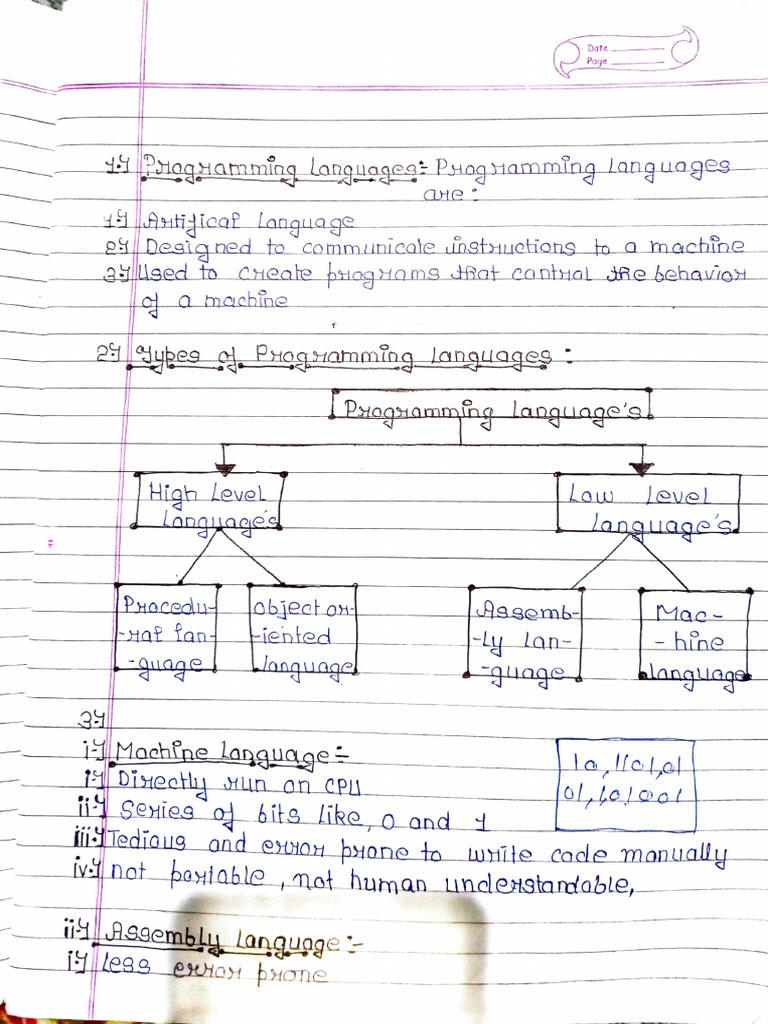 Date
Page
1.) Programming Languages:- Programming Languages
are :
1.) Artifical Language
2.) Designed to communicate instructions to a machine
3.) Used to create programs that control the behavior
of a machine
2.) Types of Programming Languages :
Programming Language's
High Level
Language's
Low Level
Language's
Procedu-
-ral lan-
-guage
object or-
-iented
language
Assemb-
-ly lan-
-guage
Mac-
-hine
language
3.)
i.) Machine Language :-
i.) Directly run on CPU
ii.) Series of bits like, 0 and 1
10, 1101, 01
01, 10, 1001
iii.) Tedious and error prone to write code manually
iv.) not portable, not human understandable,
ii.) Assembly Language :-
i.) Less error prone